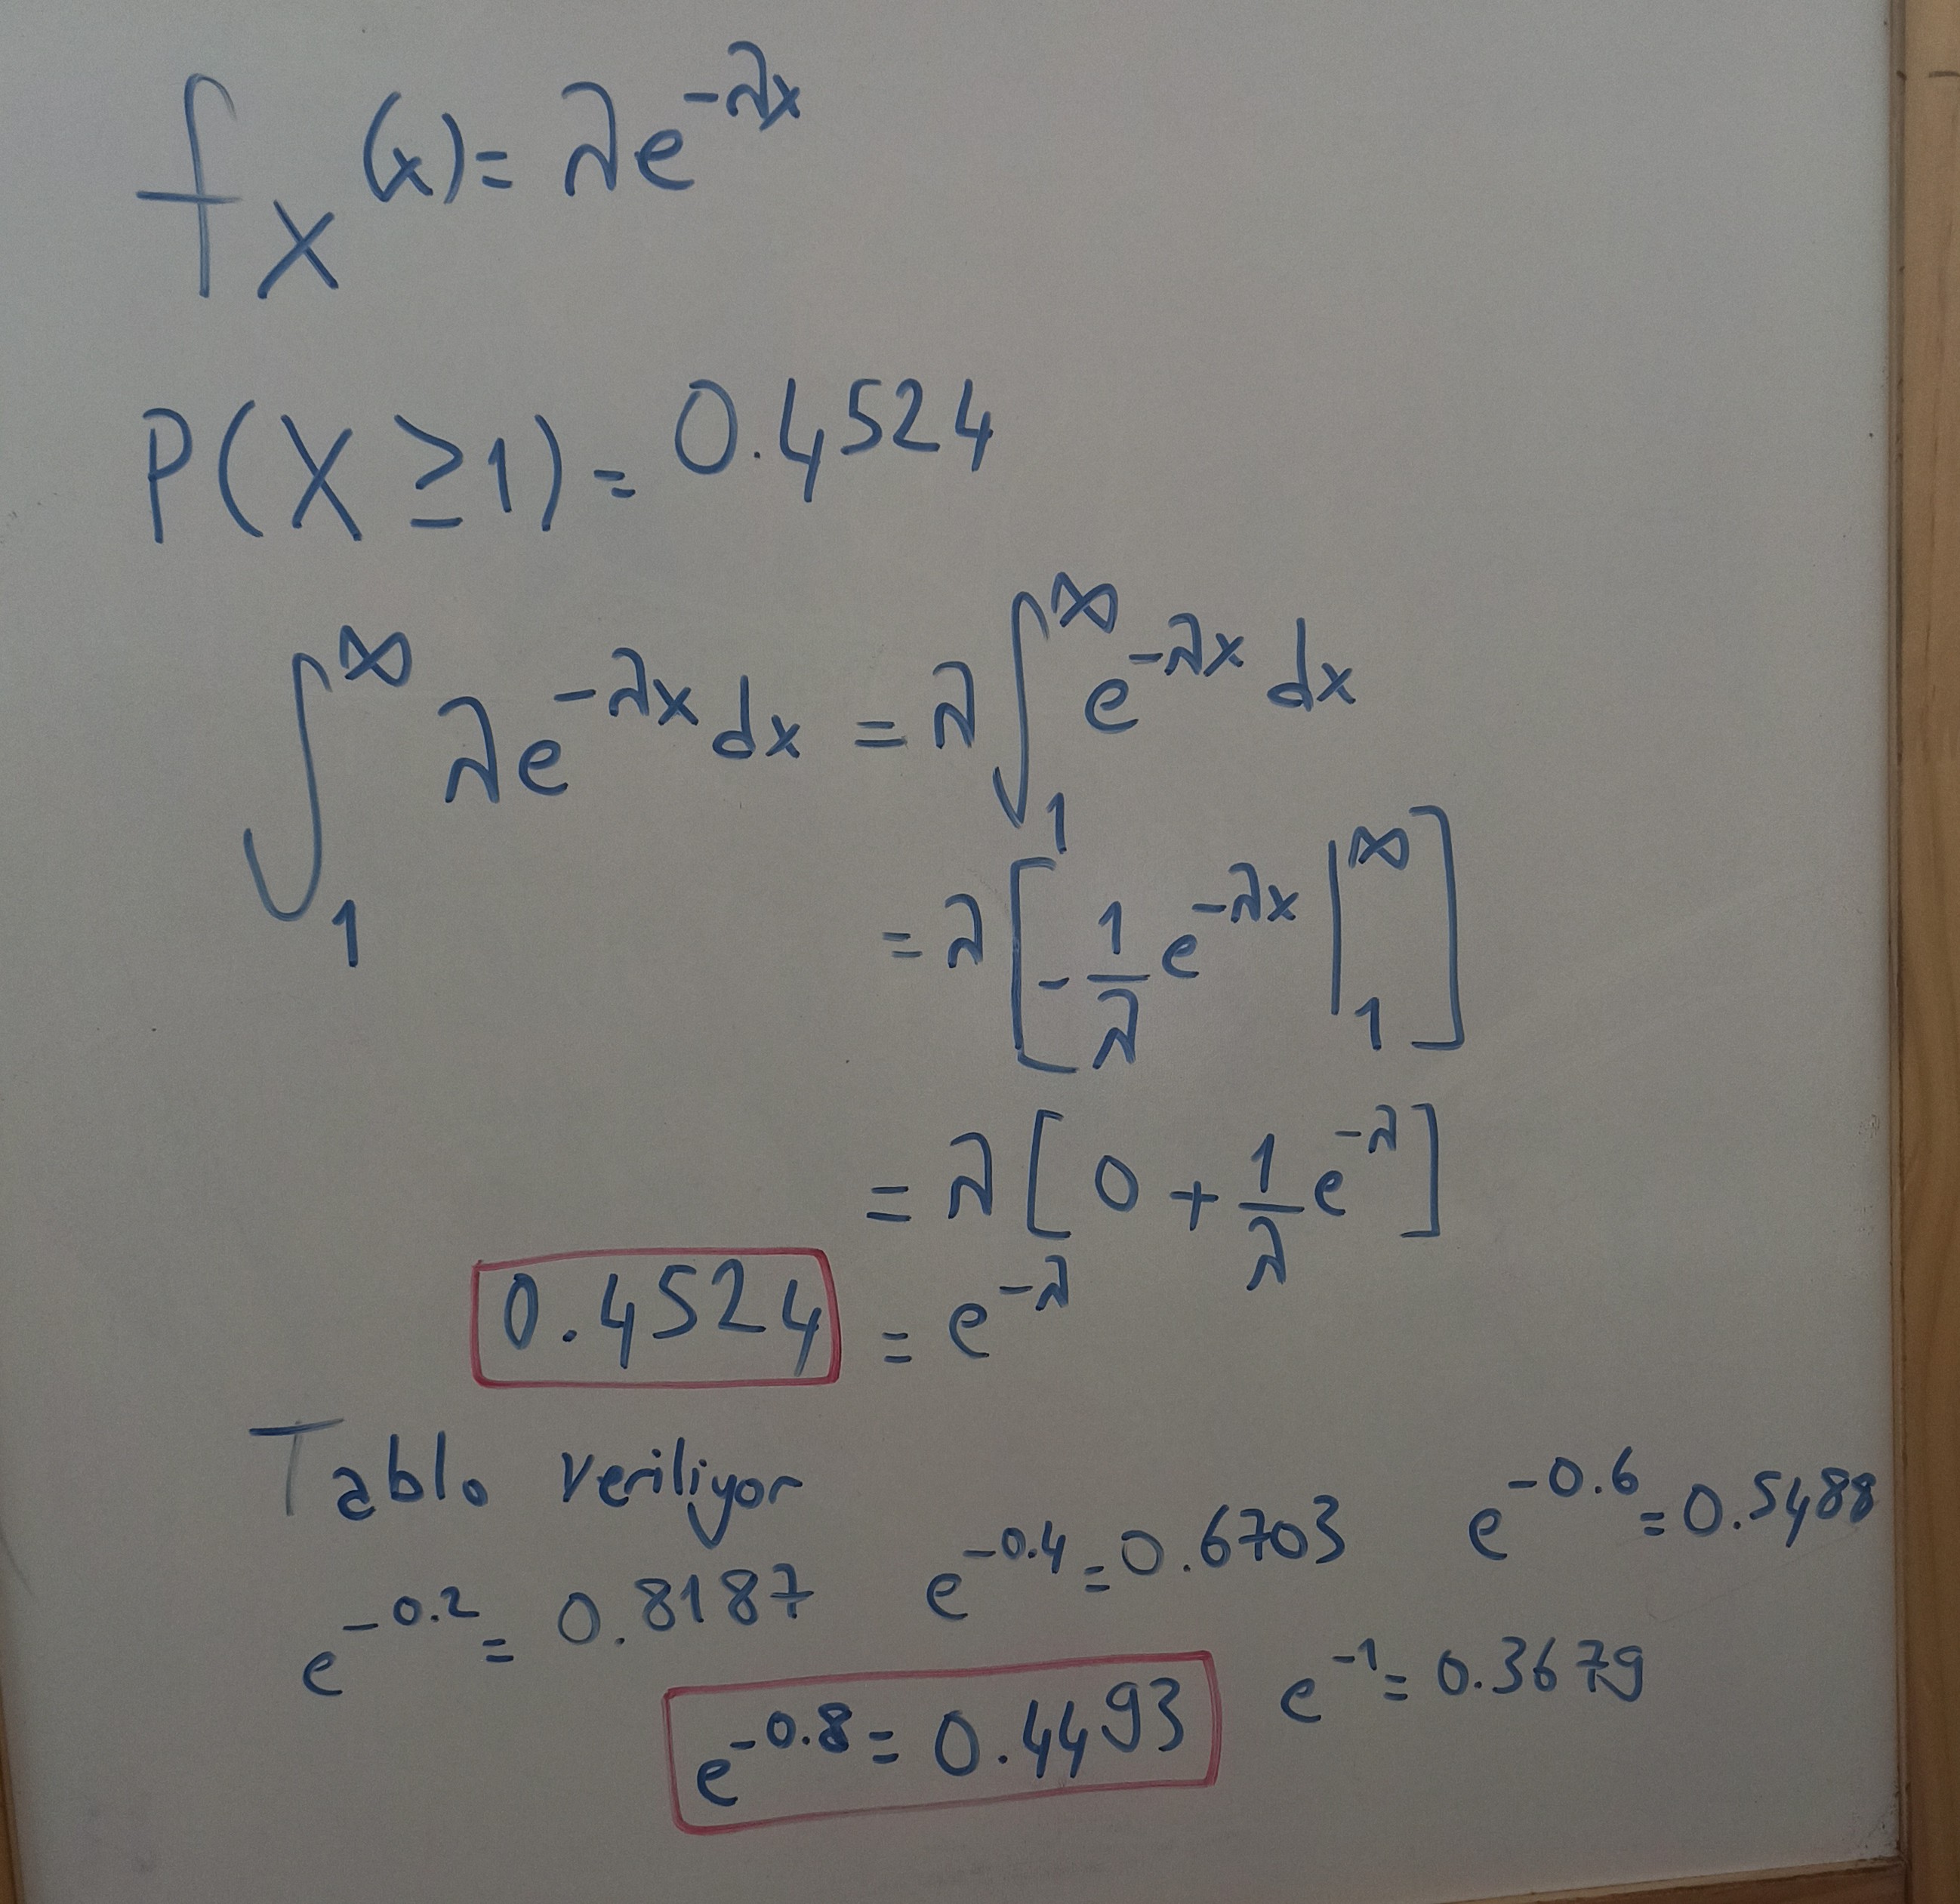 f_X(x) = λe^{-λx}
P(X ≥ 1) = 0.4524
∫_1^∞ λe^{-λx} dx = λ∫_1^∞ e^{-λx} dx
= λ[-1/λ e^{-λx} |_1^∞]
= λ[0 + 1/λ e^{-λ}]
0.4524 = e^{-λ}
Tablo veriliyor
e^{-0.2} = 0.8187 e^{-0.4} = 0.6703 e^{-0.6} = 0.5488
e^{-0.8} = 0.4493 e^{-1} = 0.3679